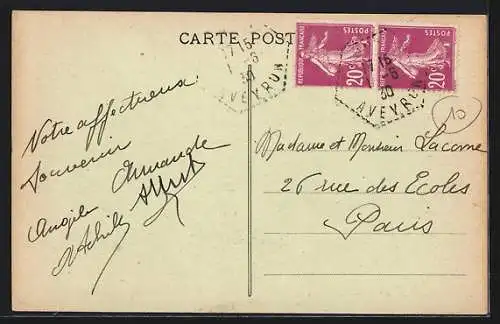 CARTE POST
REPUBLIQUE FRANÇAISE
POSTES
20c
REPUBLIQUE FRANÇAISE
POSTES
20c
17 15
6
30
AVEYRON
17 15
6
30
AVEYRON
10
Notre affectueux
Souvenir
Armande
Angèle
Achille
Madame et Monsieur Lacome
26 rue des Ecoles
Paris